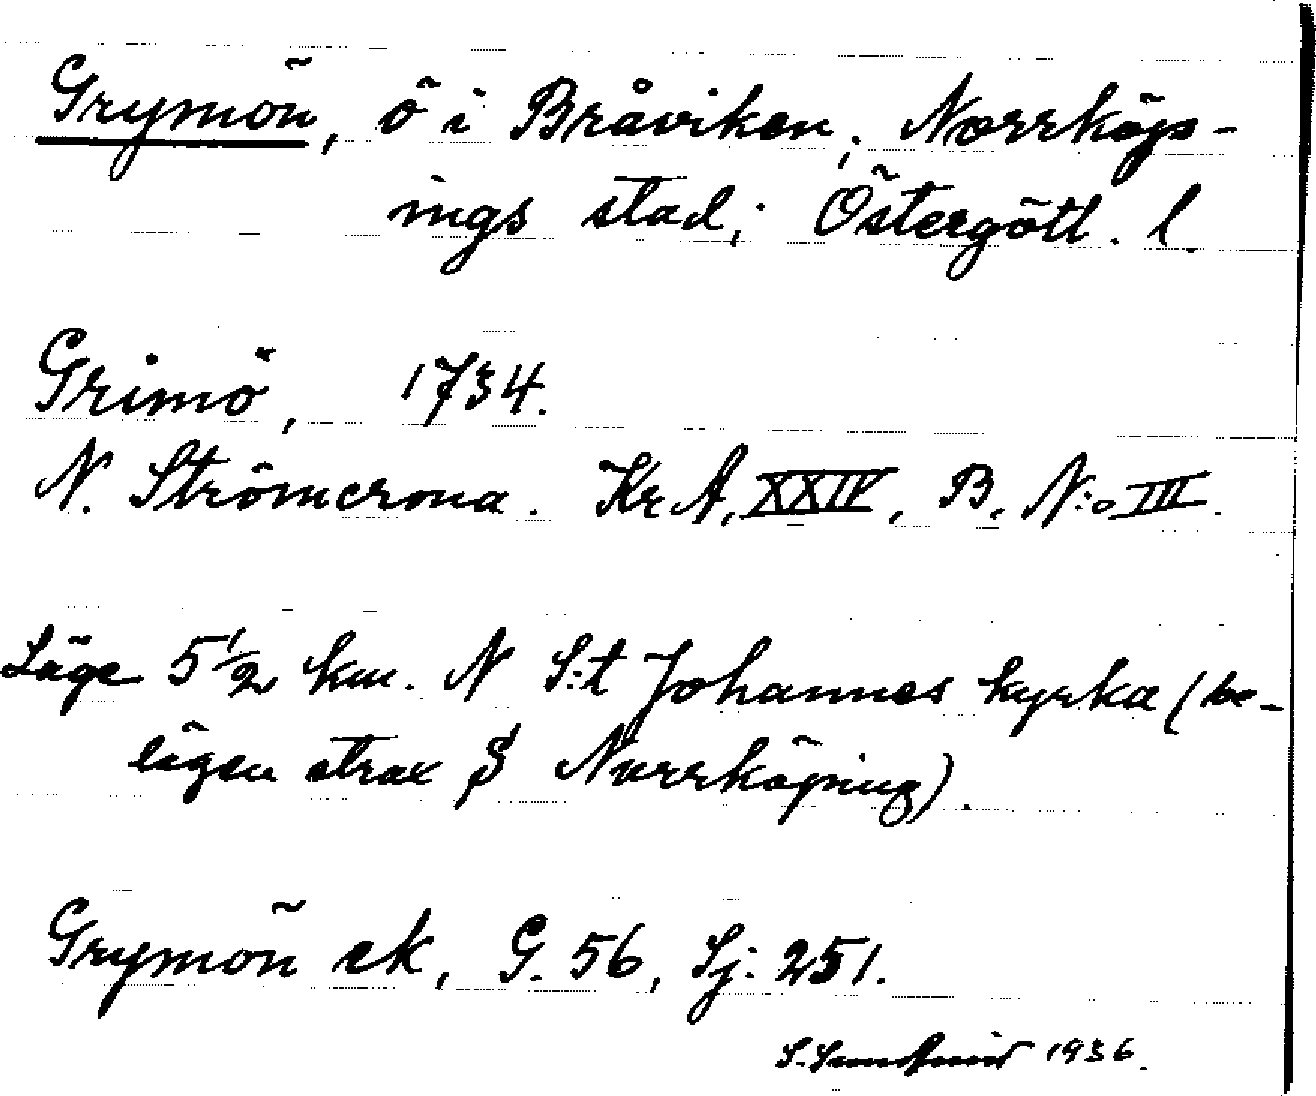 Grymön, ö i Bråviken; Norrköp-
ings stad; Östergötl. l.
Grimö, 1734.
N. Strömcrona. Kr A, XXIV, B. N:o III.
Läge 5 1/2 km. N S:t Johannes kyrka (be-
lägen strax S Norrköping).
Grymön ek, G. 56, Sj: 251.
S. 1936.